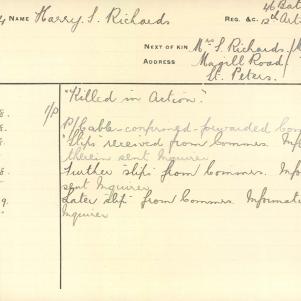 46 Bat
4 NAME Harry S. Richards REG. &c. 12th Art
NEXT OF KIN Mrs S. Richards
ADDRESS Magill Road
St. Peters.
8. 1/P "Killed in Action".
P/Cable confirmed forwarded Com
8. "Slips received from Commrs. Inf
therein sent Inquirer
8. Further slips from Commrs. Info
sent Inquirer
9. Later slip from Commrs. Informati
Inquirer